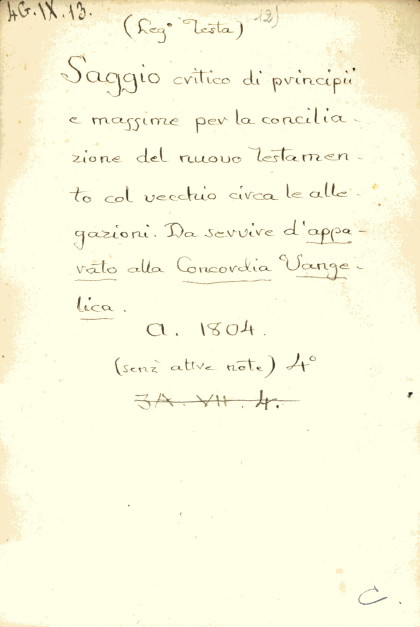 4G.IX.13.
(Leg° Testa) 12)
Saggio critico di principii
e massime per la concilia-
zione del nuovo Testamen-
to col vecchio circa le alle-
gazioni. Da servire d'appa-
rato alla Concordia Vange-
lica.
A. 1804.
(senz' altre note) 4°
3A. VII. 4.
C.